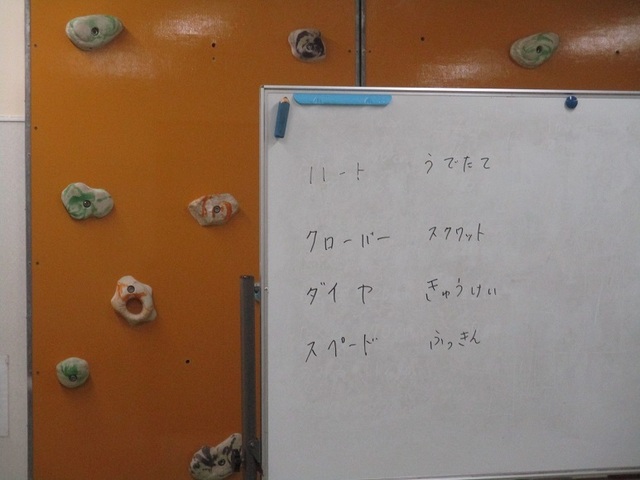 ハート うでたて
クローバー スクワット
ダイヤ きゅうけい
スペード ふっきん